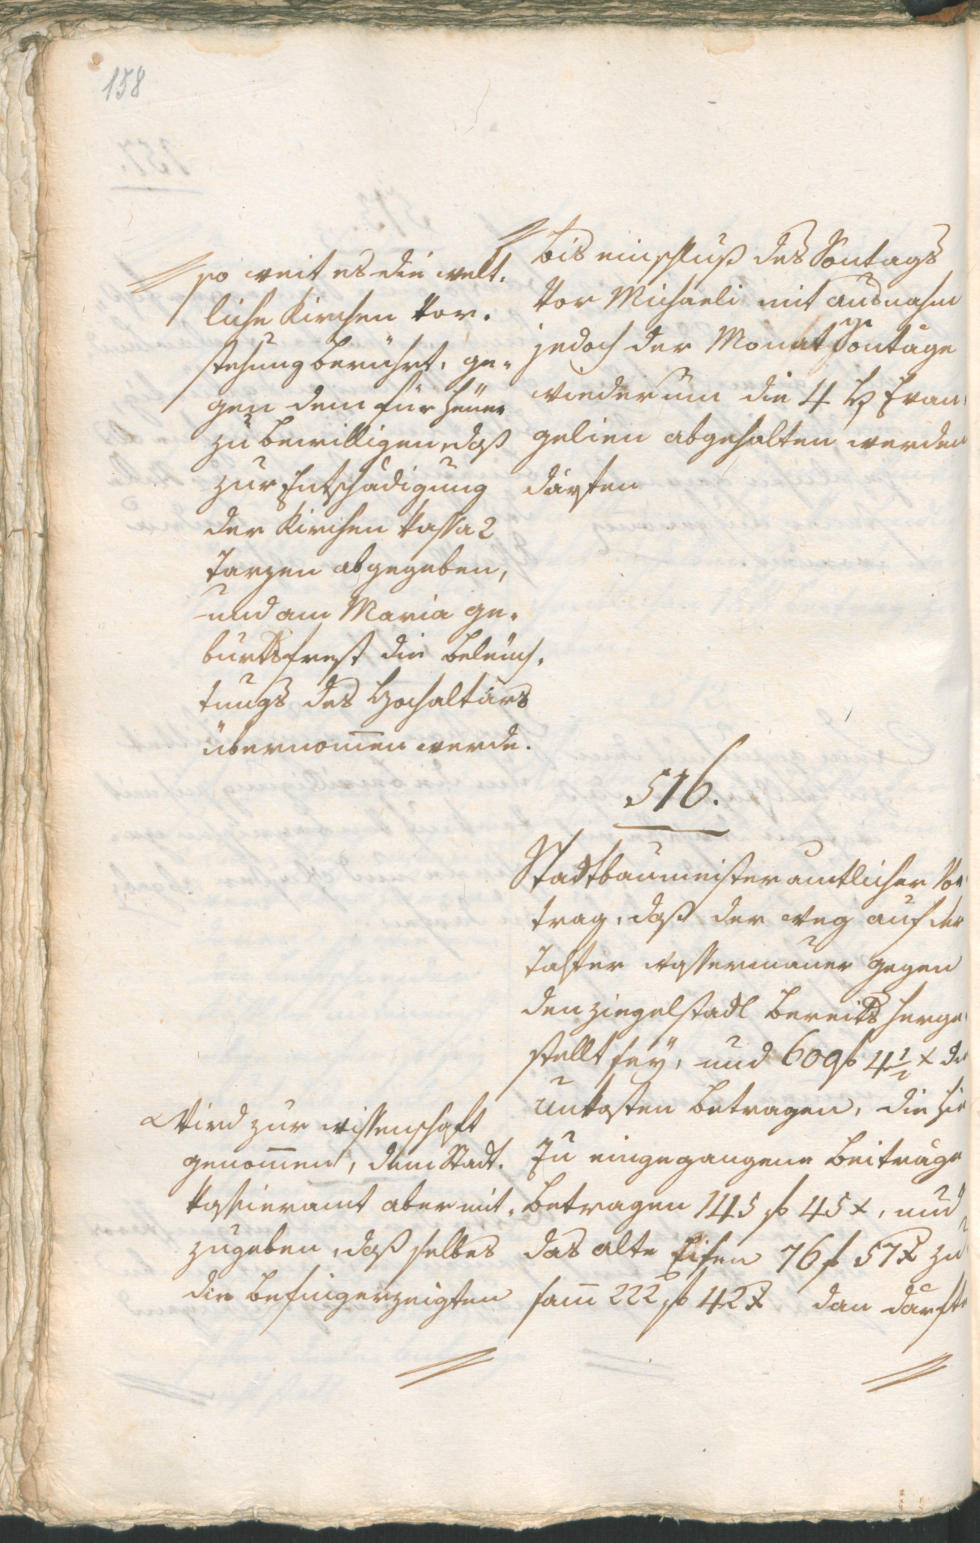 158
so weit es die welt-
liche Kirchen Vor-
stehung berührt, ge-
gen dem für heuer
zu bewilligen, daß
zur Entschädigung
der Kirchen Kassa 2
Tarzen abgegeben,
und am Maria Ge-
burtsfest die Beleuch-
tungs des Hochaltars
übernom̅en werde.
bis einschluß des Sontags
vor Michaeli mit ausnahm
jedoch der Monat Sontäge
wiederum die 4 H Evan-
gelien abgehalten werden
därften
516.
Stadtbaumeisteramtlicher Vor-
trag, daß der weg auf der
Talfer wassermauer gegen
den Ziegelstadl bereits herge-
stellt sey, und 609 f 4½ x die
Unkosten betragen, die hie-
zu eingegangene Beiträge
betragen 145 f 45 x, und
das alte Eisen 76 f 57 x zu-
sam̅ 222 f 42 x dan därfte
Wird zur wissenschaft
genom̅en, dem Stadt-
kassieramt aber mit-
zugeben, daß selbes
die befingerzeigten